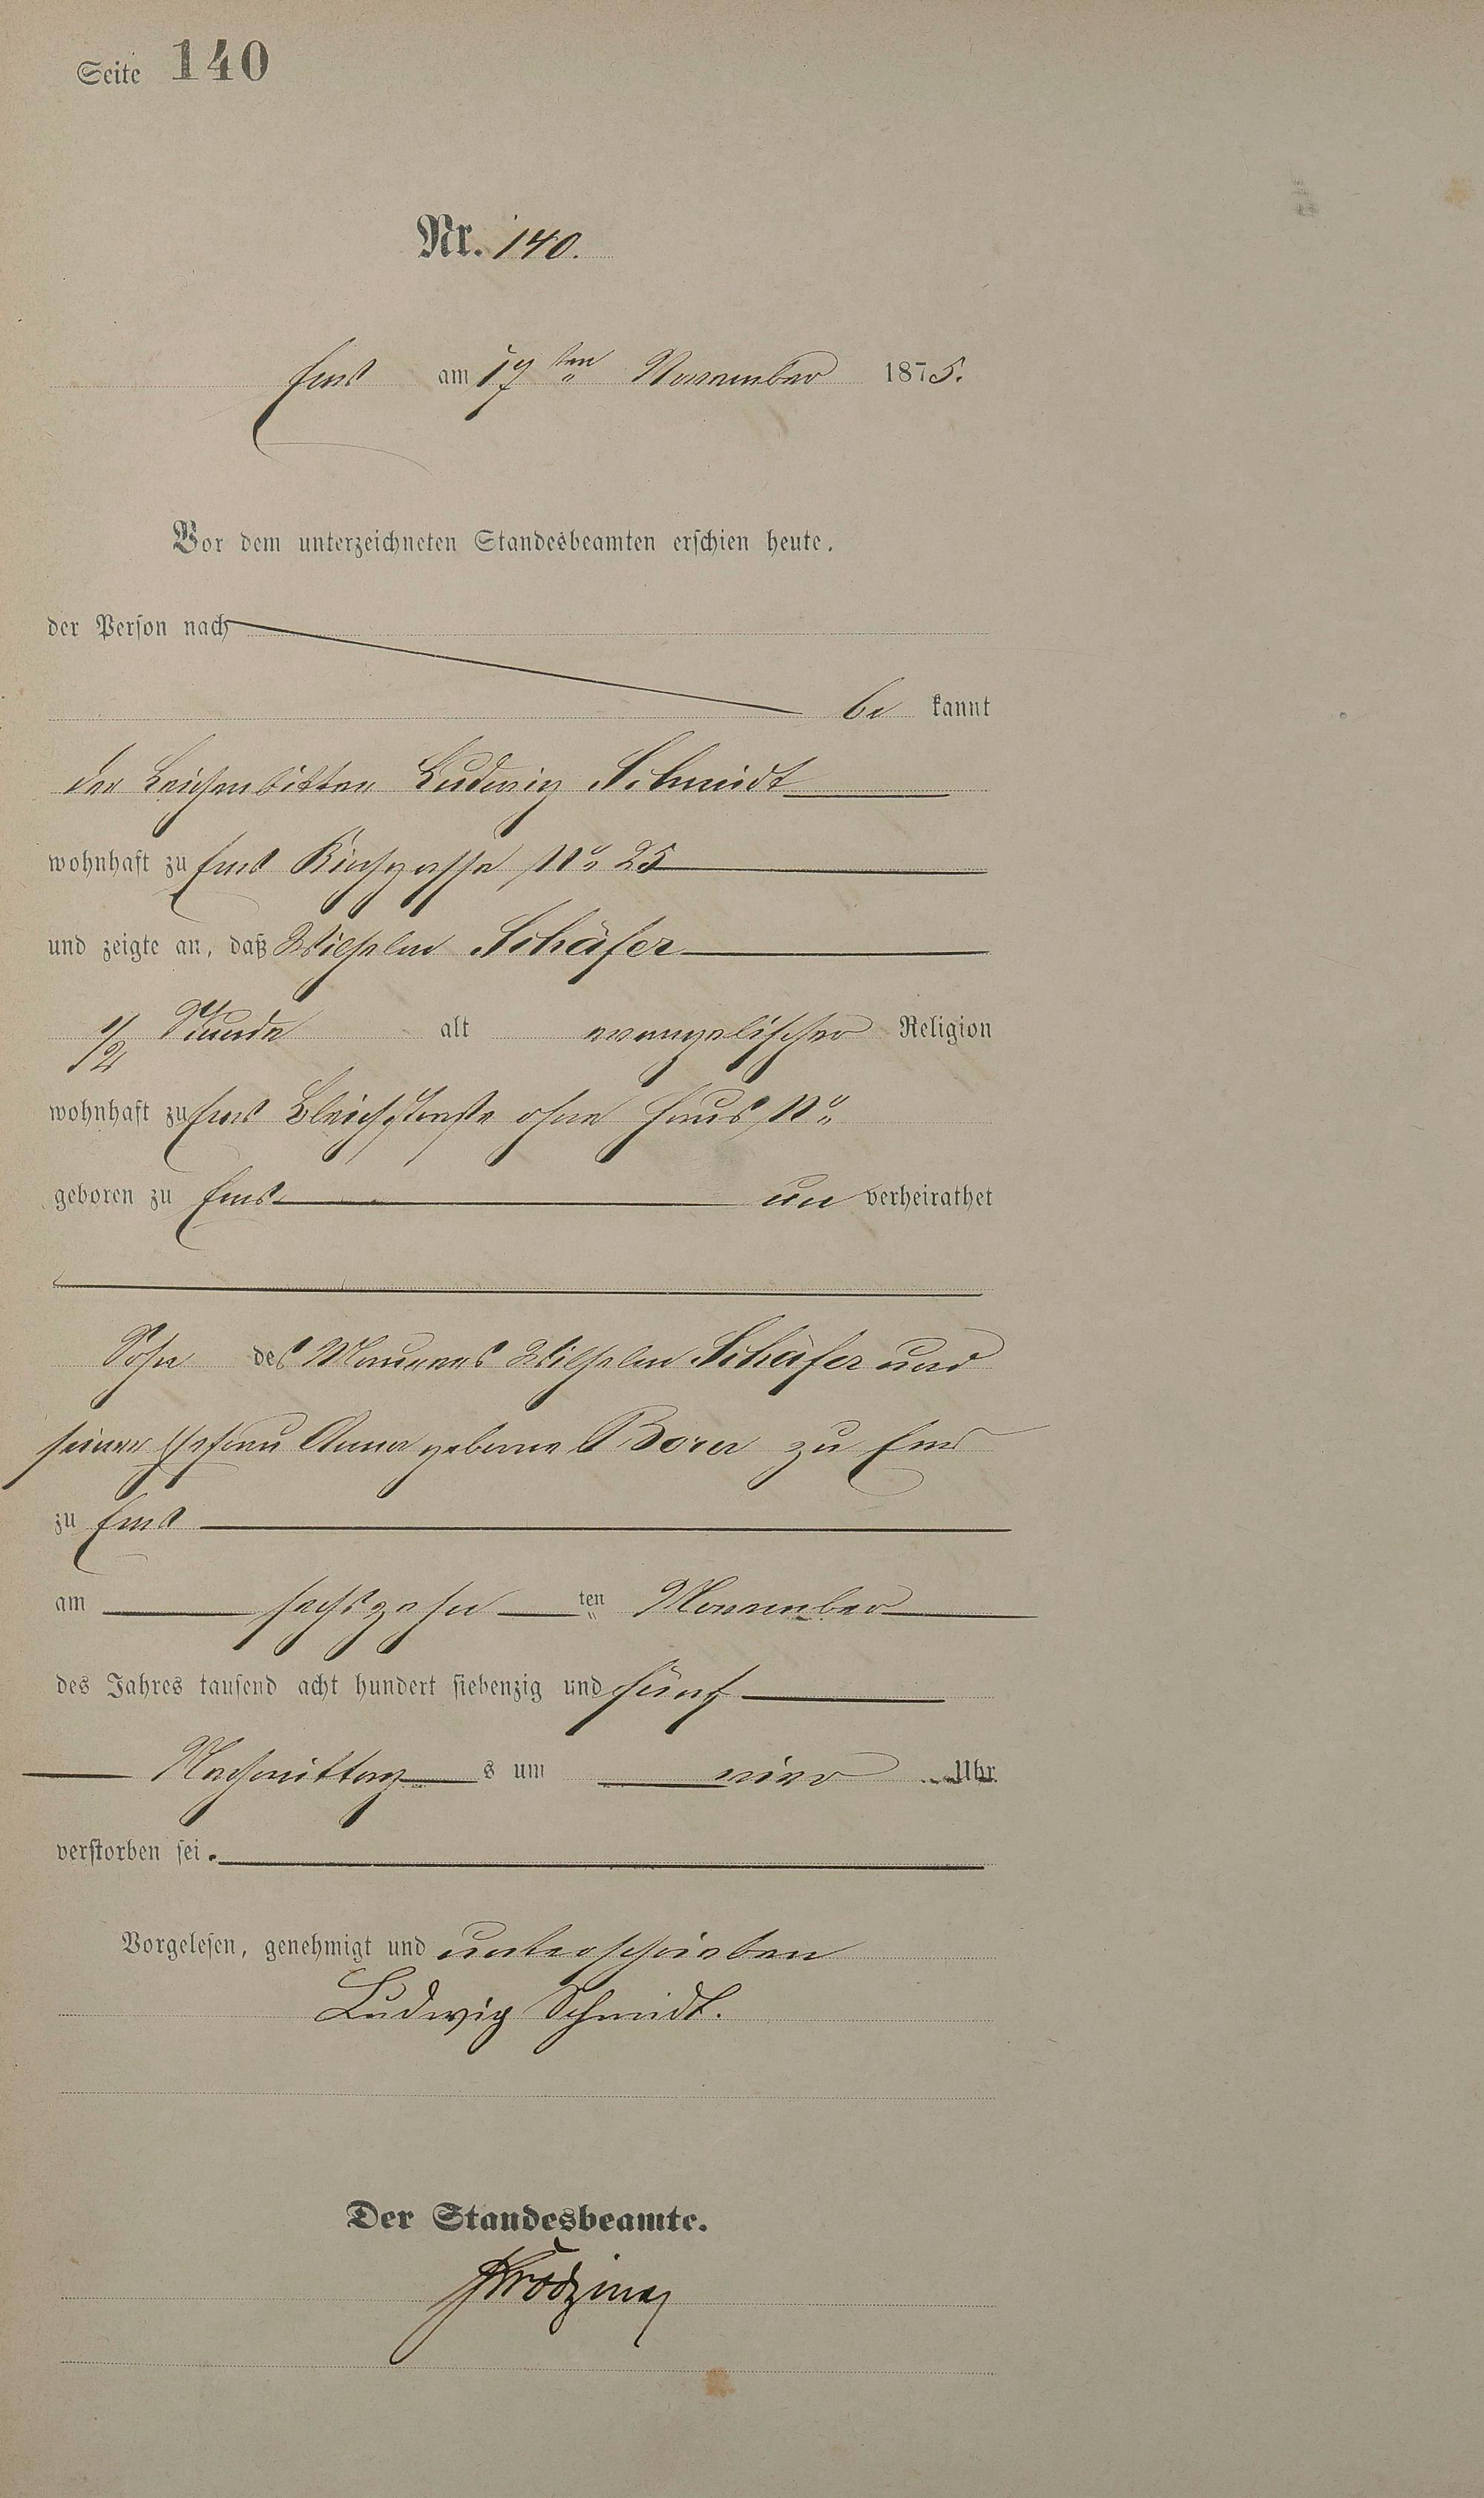 Seite 140
Nr. 140.
Ems am 17ten November 1875.
Vor dem unterzeichneten Standesbeamten erschien heute,
der Person nach
be kannt
der Leichenbitter Ludwig Schmidt
wohnhaft zu Ems Kirchgasse No 25
und zeigte an, daß Wilhelm Schäfer
1/2 Stunde alt evangelischer Religion
wohnhaft zu Ems Bleichstraße ohne Haus No
geboren zu Ems un verheirathet
Sohn des Maurers Wilhelm Schäfer und
seiner Ehefrau Anna geborne zu Ems
zu Ems
am sechszehn ten November
des Jahres tausend acht hundert siebenzig und fünf
Nachmittag s um vier Uhr
verstorben sei.
Vorgelesen, genehmigt und unterschrieben
Ludwig Schmidt.
Der Standesbeamte.